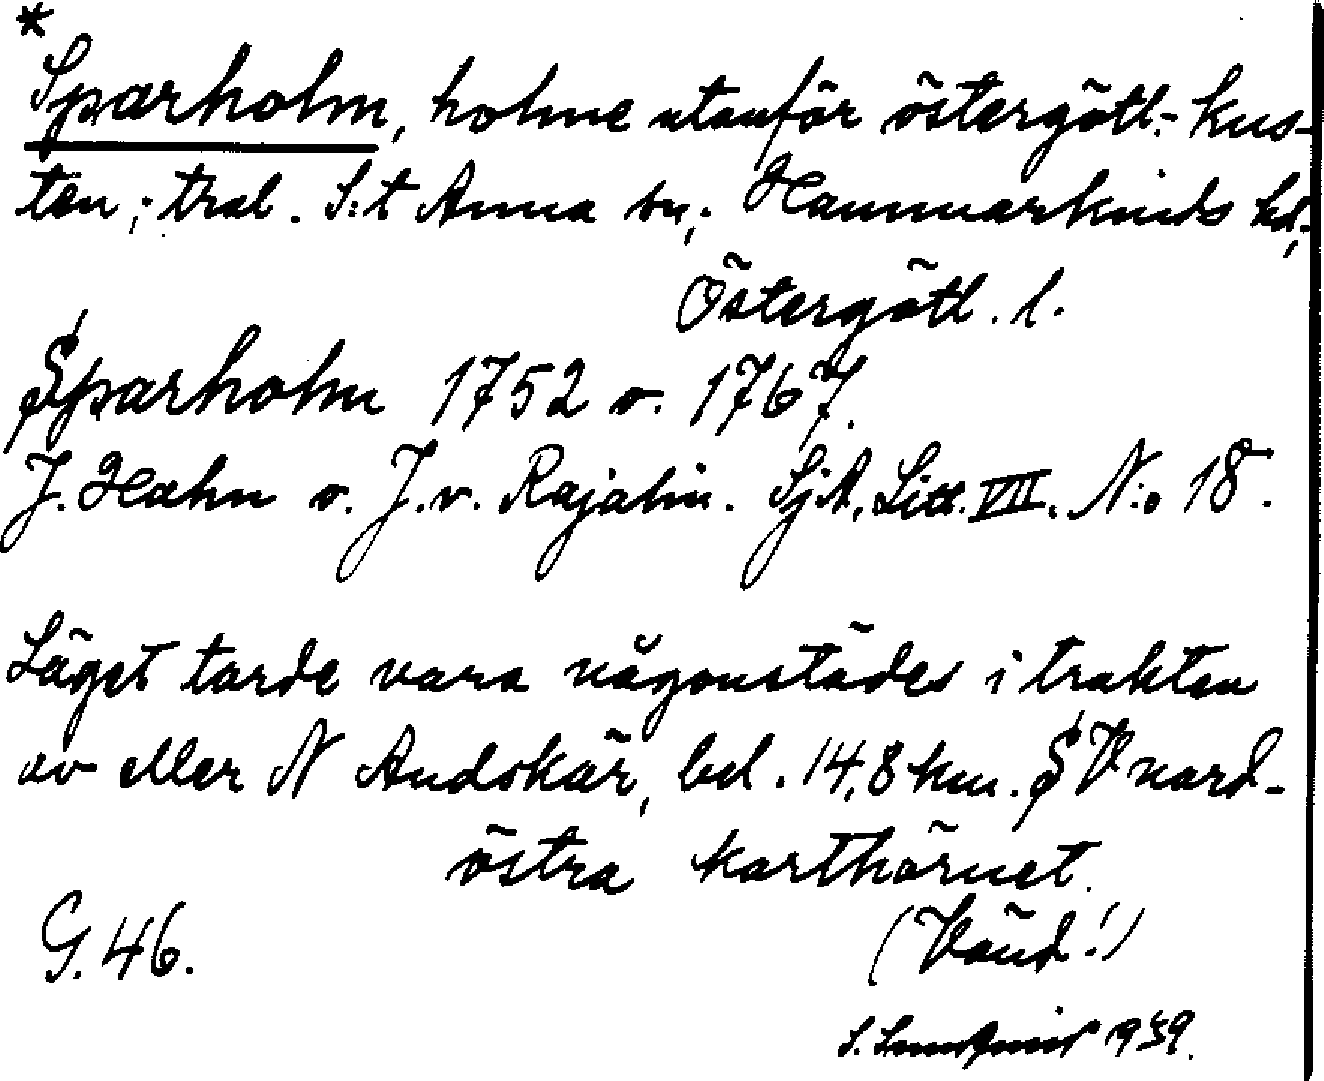 *
Sparholm, holme utanför östergötl.-kus-
ten; tral. S:t Anna sn; Hammarkinds hd;
Östergötl. l.
Sparholm 1752 o. 1767.
J. Hahn o. J. v. Rajalin. SjA. Litt. VII. N:o 18.
Läget torde vara någonstädes i trakten
av eller N Audskär, bel. 14,8 km. S V nord-
östra karthörnet.
(Vänd!)
G. 46.
S. 1939.